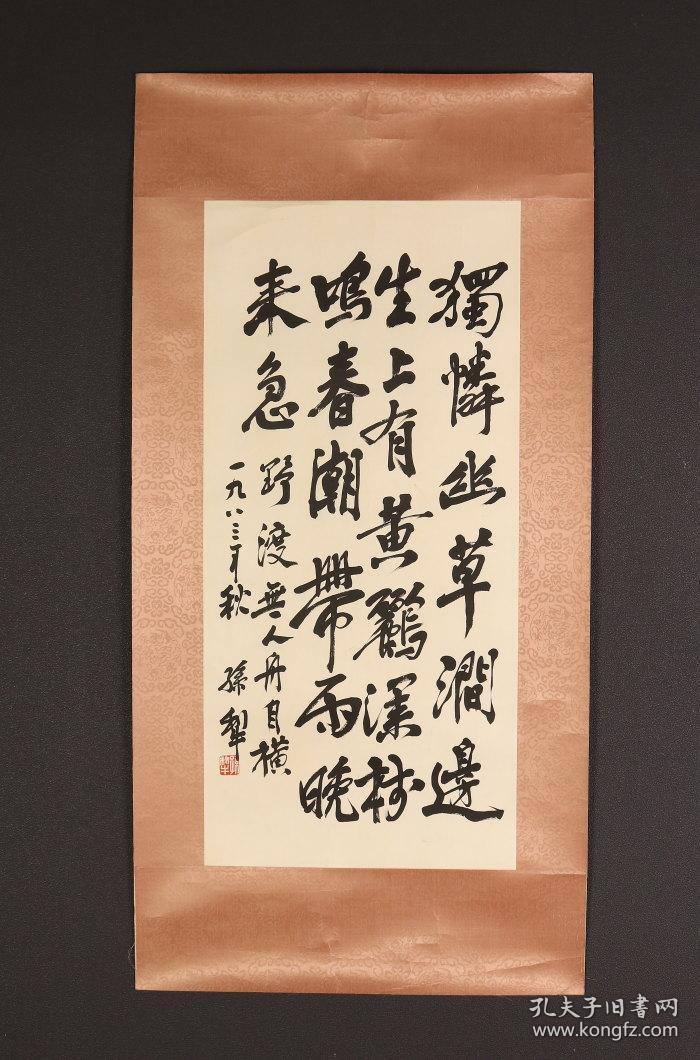 獨憐幽草澗邊
生上有黄鸝深樹
鳴春潮帶雨晚
来急野渡無人舟自横
一九八三年秋 孫犁
孔夫子旧书网
www.kongfz.com